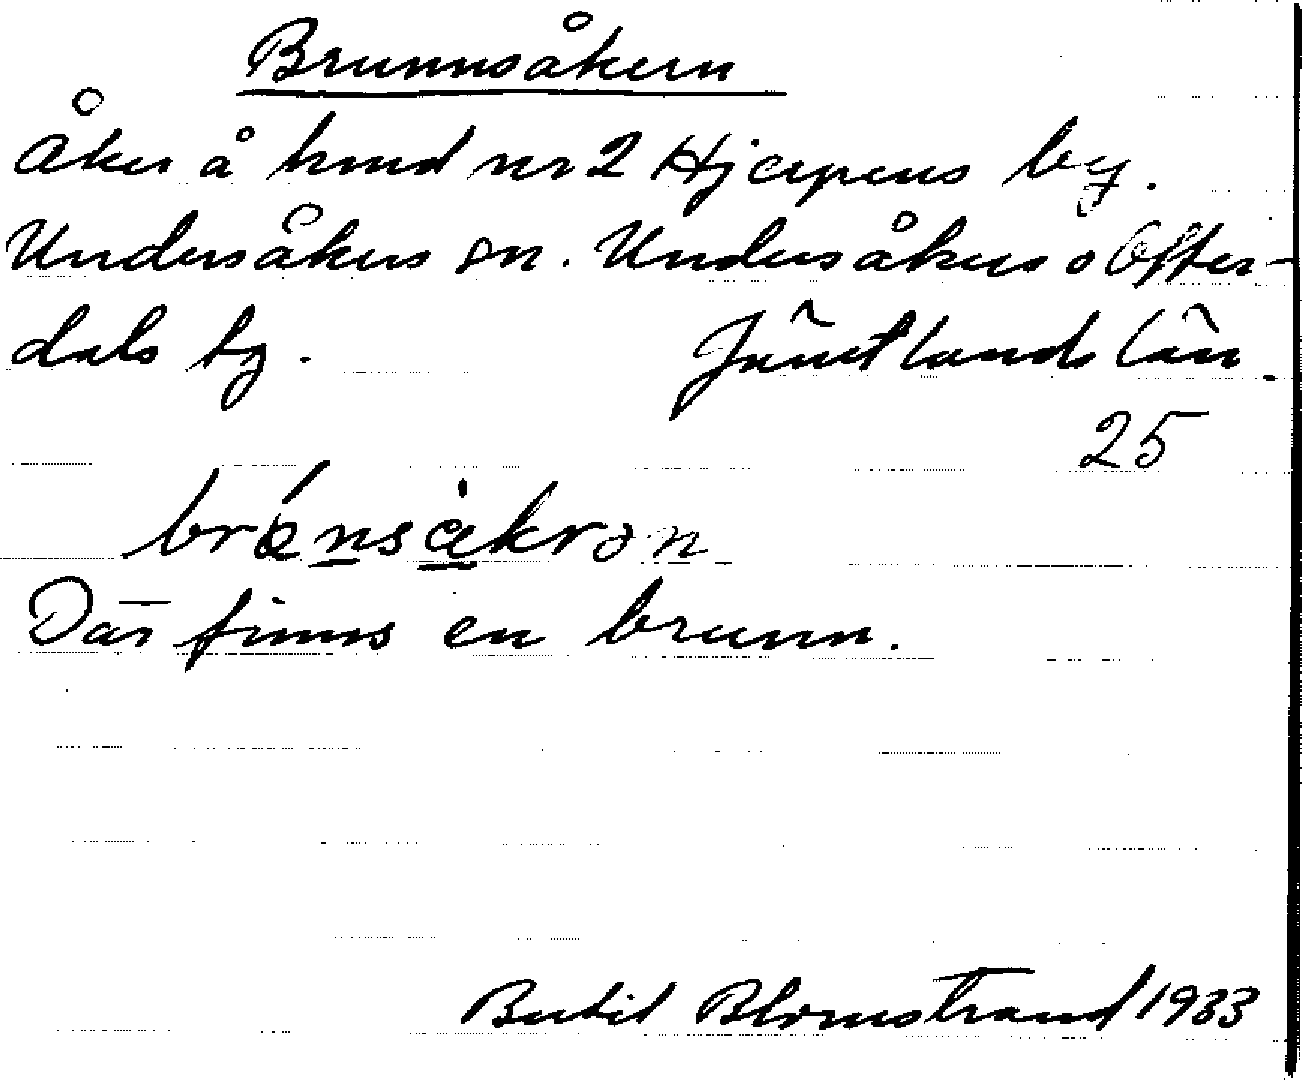 Brunnsåkern
Åker å hmd nr 2 Hjerpens by.
Undersåkers sn. Undersåkers o Offer-
dals tg. Jämtlands län.
25
Där finns en brunn.
Bertil Blomstrand 1933